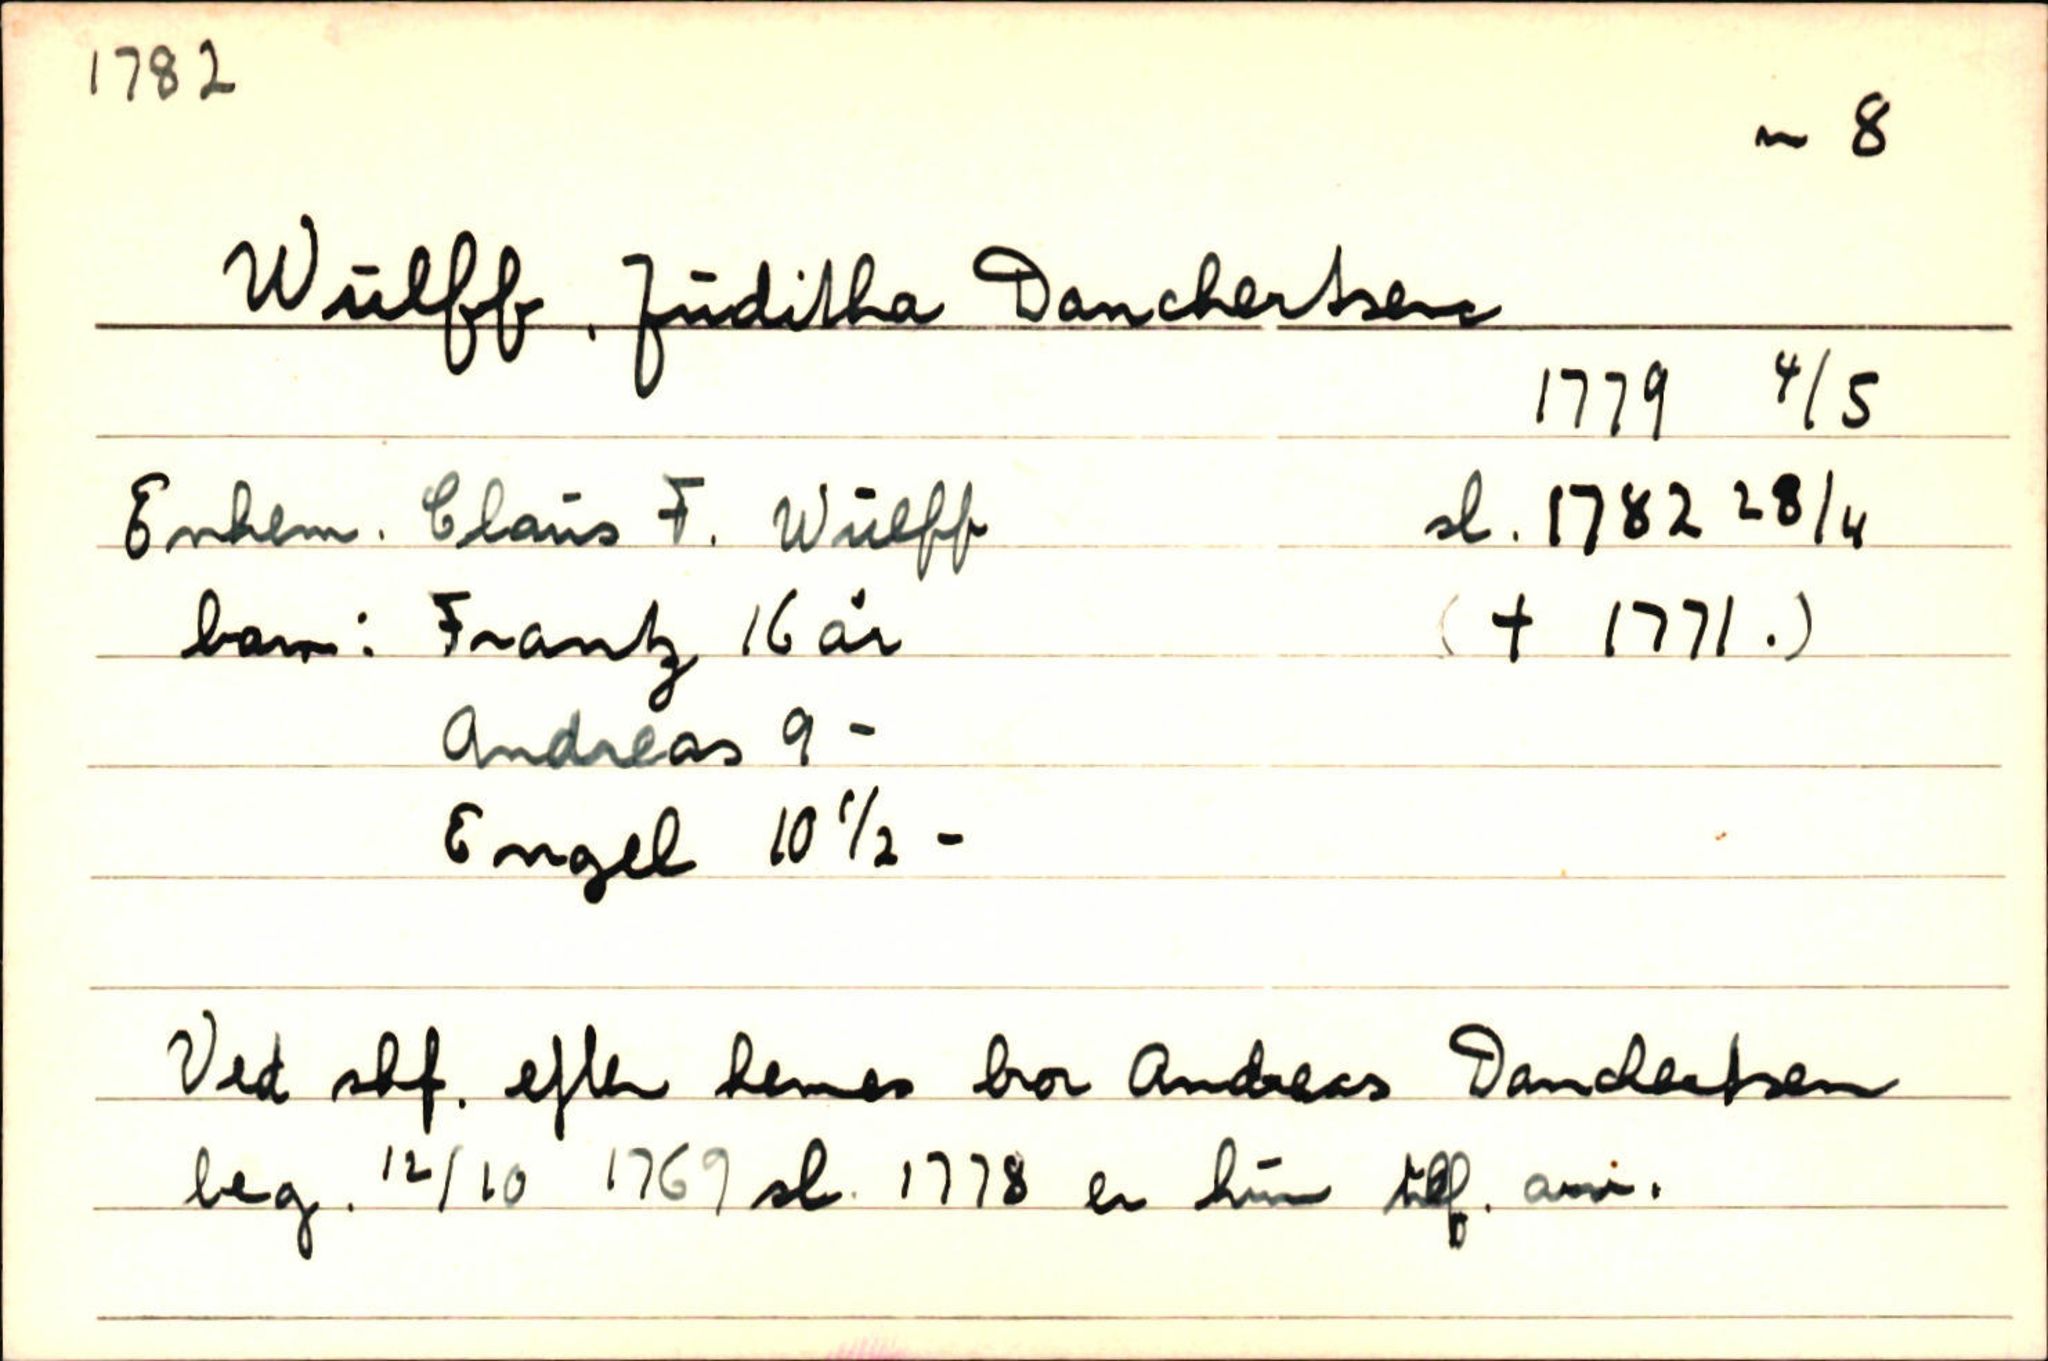 1782
n 8
Wulff, Juditha Danchertsen
1779 4/5
Enkem. Claus F. Wulff sl. 1782 28/4
barn: Frantz 16 år († 1771.)
Andreas 9 -
Engel 10 1/2 -
Ved skf. efter hennes bror Andreas Danchertsen
beg. 12/10 1769 sl. 1778 er hun arv.